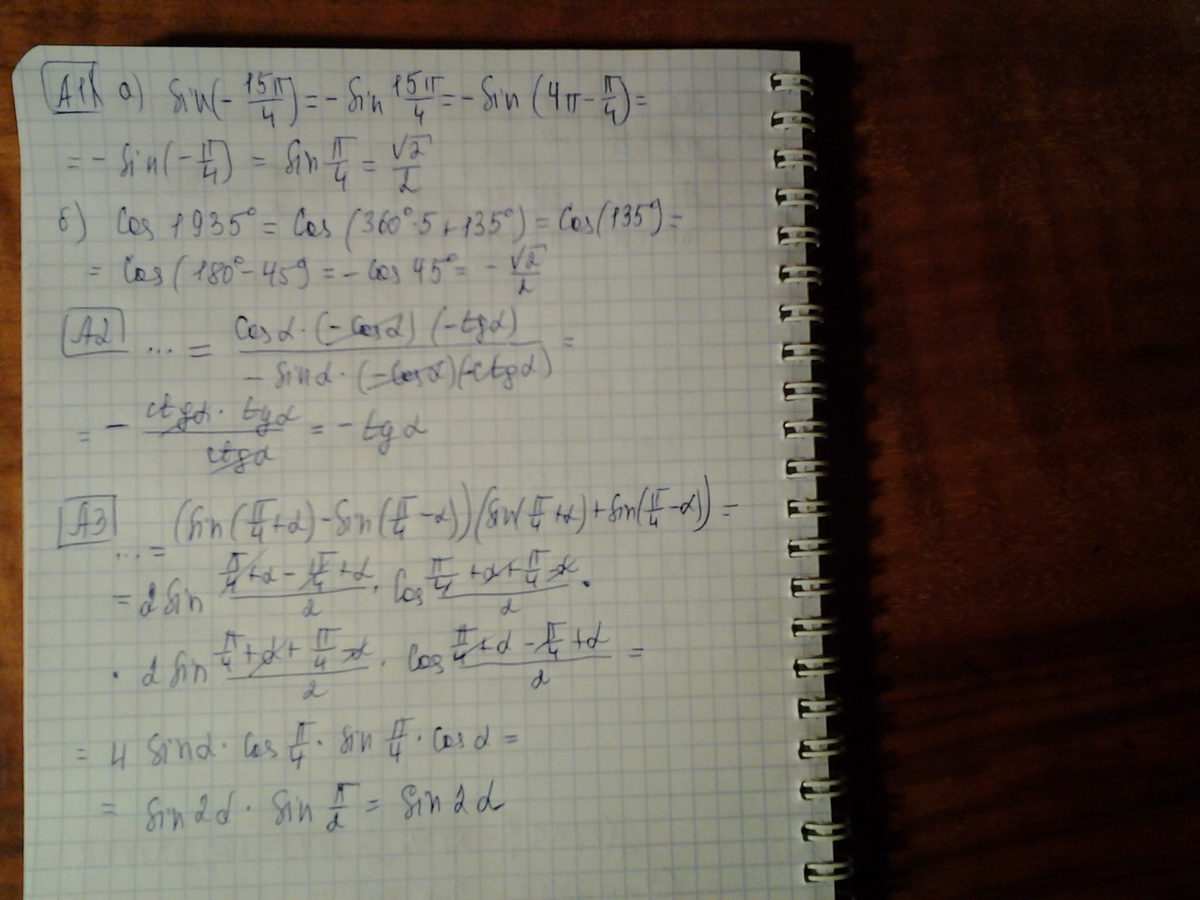 A1 а) sin(-15π/4) = -sin 15π/4 = -sin (4π - π/4) =
= -sin(-π/4) = sin π/4 = √2/2
б) cos 1935° = cos (360°·5 + 135°) = cos(135°) =
= cos(180° - 45°) = -cos 45° = -√2/2
A2 ... = cosα·(-cosα)(-tgα) / -sinα·(-cosα)(-ctgα) =
= - ctgα·tgα / ctgα = -tgα
A3 ... = (sin(π/4+α) - sin(π/4-α))(sin(π/4+α) + sin(π/4-α)) =
= 2 sin (π/4+α-π/4+α)/2 · cos (π/4+α+π/4-α)/2 ·
· 2 sin (π/4+α+π/4-α)/2 · cos (π/4+α-π/4+α)/2 =
= 4 sinα · cos π/4 · sin π/4 · cosα =
= sin2α · sin π/2 = sin2α